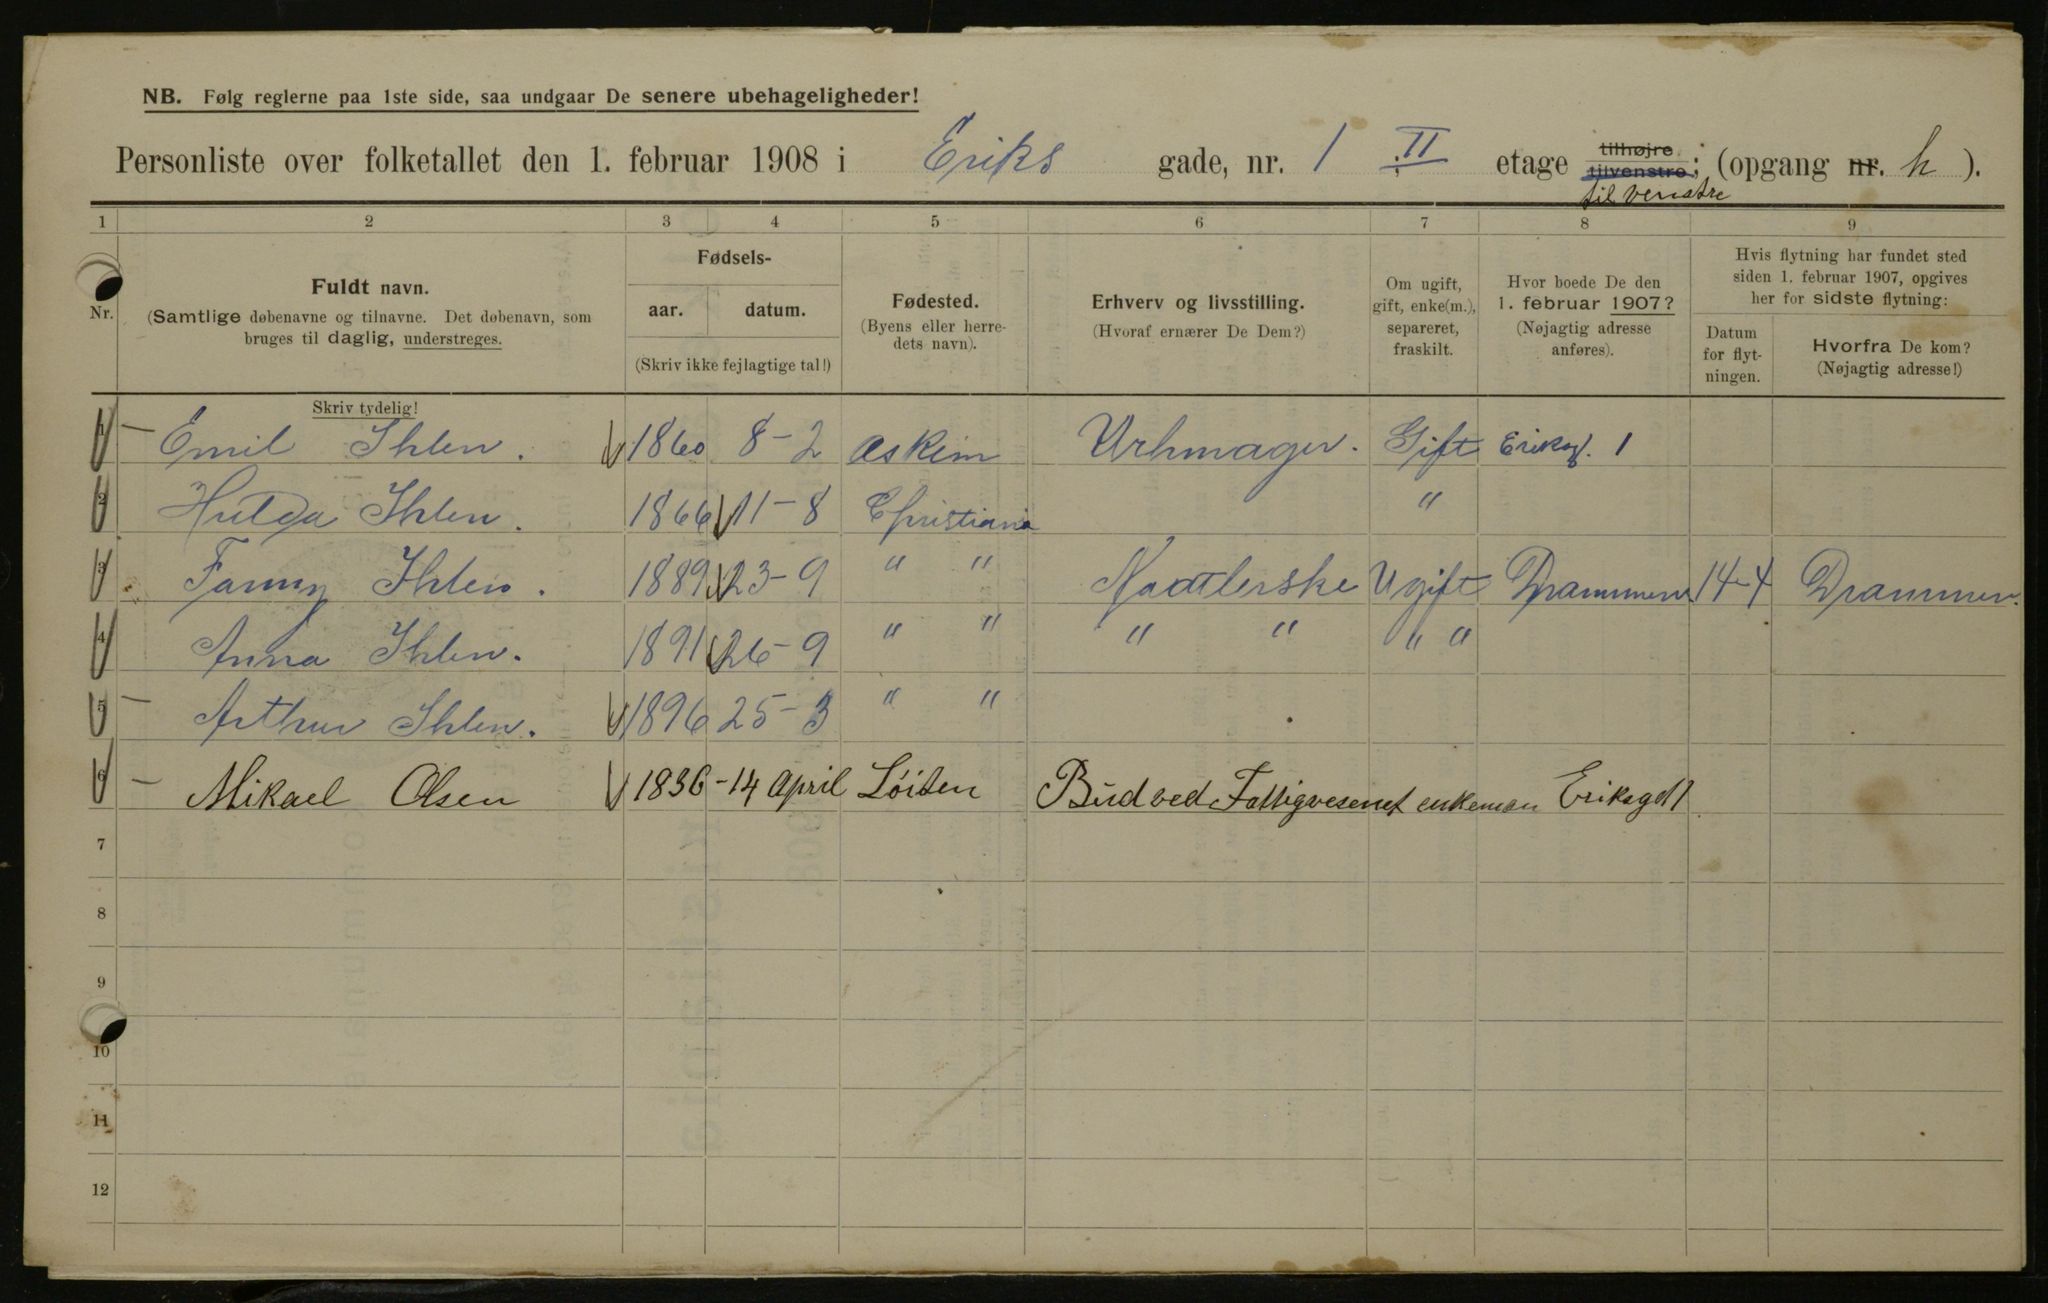 NB. Følg reglerne paa 1ste side, saa undgaar De senere ubehageligheder!
Personliste over folketallet den 1. februar 1908 i Eriks gade, nr. 1 II etage tilhøjre tilvenstre; (opgang nr. h).
til venstre
1 2 3 4 5 6 7 8 9
Nr.
Fuldt navn.
(Samtlige døbenavne og tilnavne. Det døbenavn, som
bruges til daglig, understreges.
Fødsels-
aar. datum.
(Skriv ikke fejlagtige tal!)
Fødested.
(Byens eller herre-
dets navn).
Erhverv og livsstilling.
(Hvoraf ernærer De Dem?)
Om ugift,
gift, enke(m.),
separeret,
fraskilt.
Hvor boede De den
1. februar 1907?
(Nøjagtig adresse
anføres).
Hvis flytning har fundet sted
siden 1. februar 1907, opgives
her for sidste flytning:
Datum
for flyt-
ningen.
Hvorfra De kom?
(Nøjagtig adresse!)
Skriv tydelig!
1 Emil Ihlen. 1860 8-2 Askim Urhmager. Gift Eriksg. 1
2 Hulda Ihlen. 1866 11-8 Christiania "
3 Fanny Ihlen. 1889 23-9 " " Naatlerske Ugift Drammen 14-4 Drammen.
4 Anna Ihlen. 1891 26-9 " " " " " "
5 Arthur Ihlen. 1896 25-3 " "
6 Mikael Olsen 1836 -14 April Löiten Bud ved Fattigvesenet enkeman Eriksgd 1
7
8
9
10
11
12